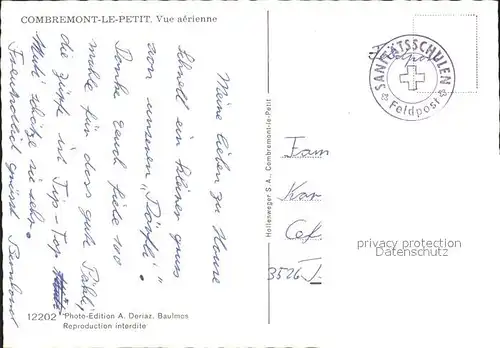 COMBREMONT-LE-PETIT. Vue aérienne
Meine lieben zu Hause
Schnell ein kleiner gruss
von unserem "Dörfli"
Danke euch viele 100
mahle für dass gute Päckli,
die Zünfte ist Tip-Top
sehr.
Freundlich grüsst Bernhard
12202 Photo-Edition A. Deriaz, Baulmes
Reproduction interdite
Hollenweger S.A., Combremont-le-Petit
Feldpost
SANITÄTSSCHULEN
Feldpost
Fam
Kar
Gef.
3526 I.
privacy protection
VARIOUS CARDS